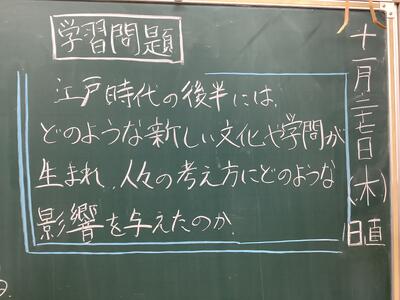 学習問題
江戸時代の後半には、
どのような新しい文化や学問が
生まれ、人々の考え方にどのような
影響を与えたのか。
十一月二十七日(木)
日直